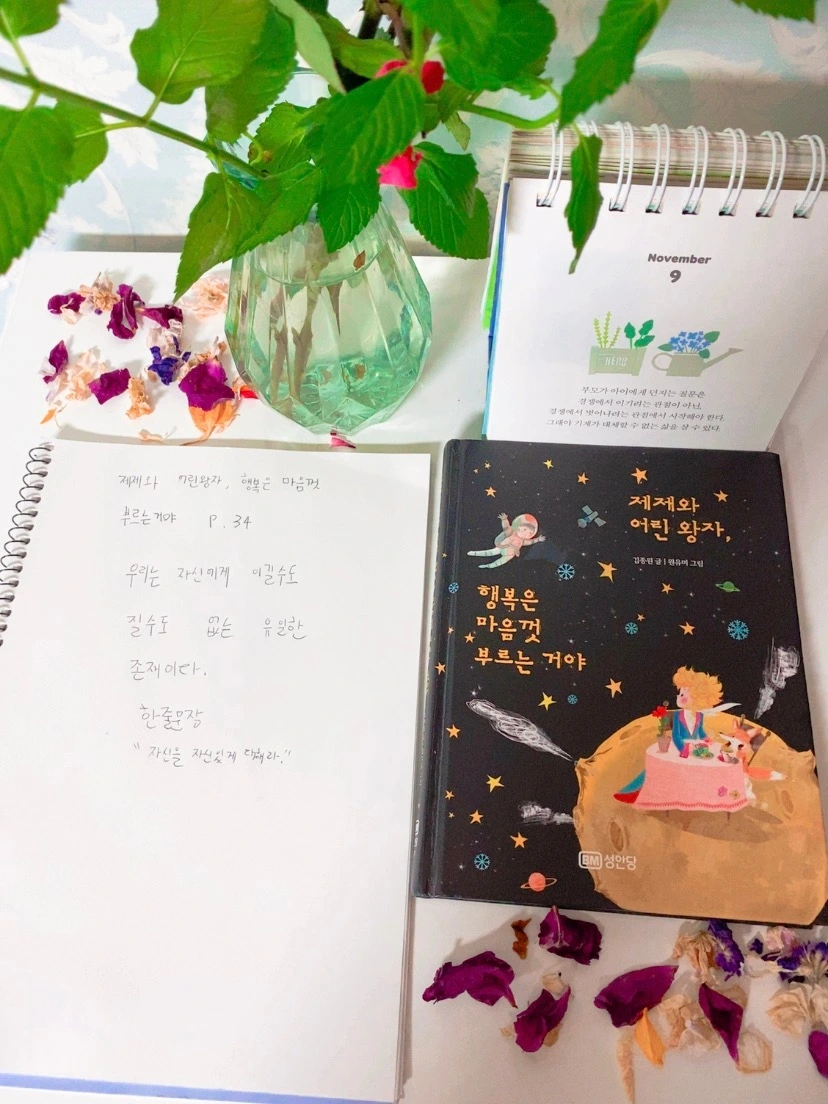 November
9
HERB
부모가 아이에게 던지는 질문은
경쟁에서 이기려는 관점이 아닌,
경쟁에서 벗어나려는 관점에서 시작해야 한다.
그래야 기계가 대체할 수 없는 삶을 살 수 있다.
제제와 어린왕자, 행복은 마음껏
부르는거야 P. 34
우리는 자신에게 이길수도
질수도 없는 유일한
존재이다.
한줄문장
"자신을 자신있게 대해라."
제제와
어린 왕자,
김종원 글 | 원유미 그림
행복은
마음껏
부르는 거야
BM 성안당